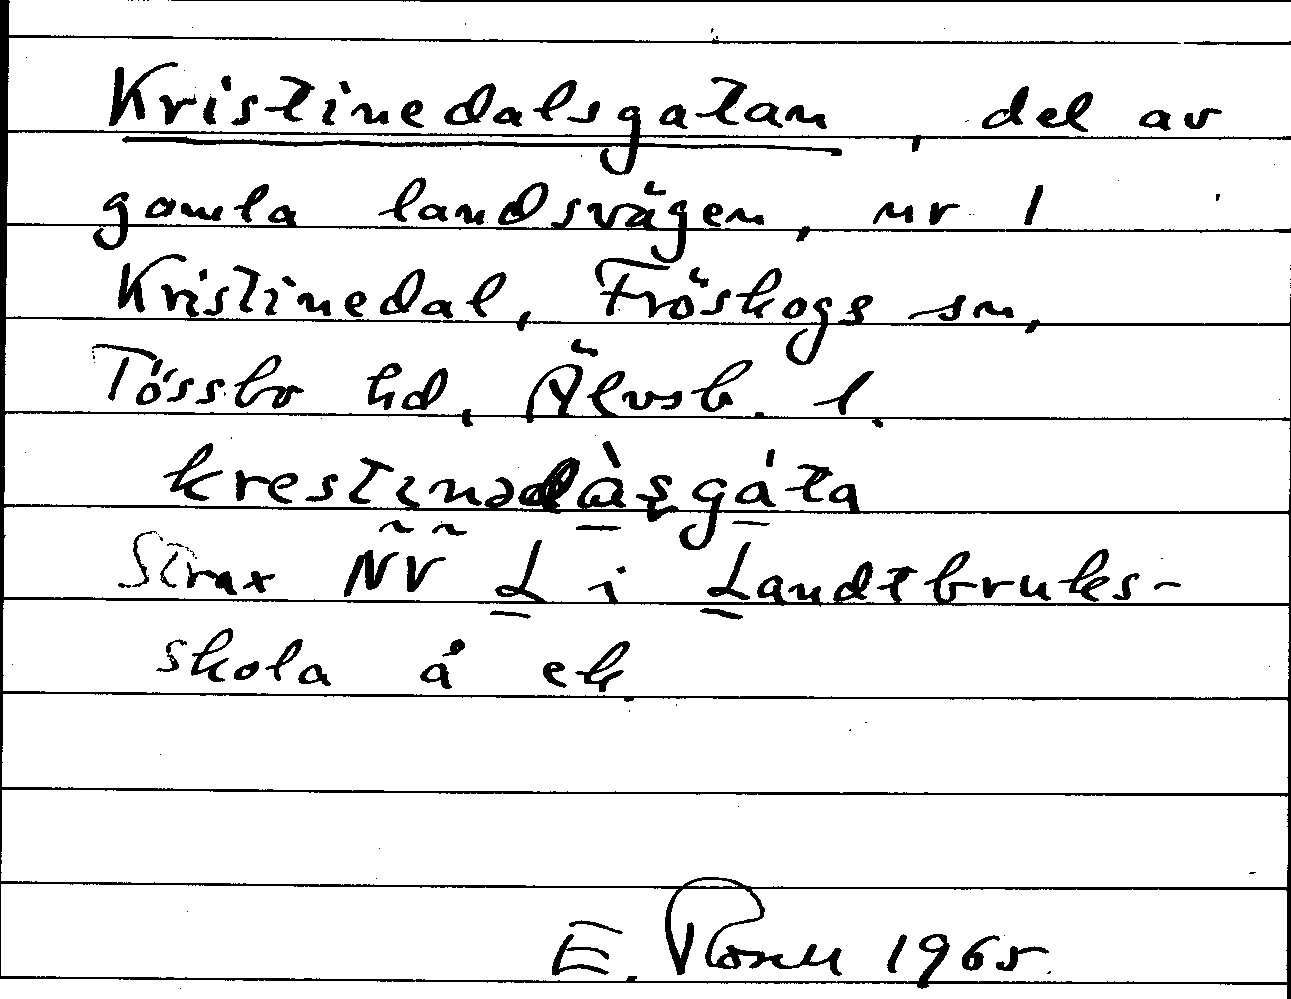 Kristinedalsgatan, del av
gamla landsvägen, nr 1
Kristinedal, Fröskogs sn,
Tössbo hd, Älvsb. l.
krestinədàʂgáta
Strax NV L i Landtbruks-
skola å ek.
E. Rosell 1965